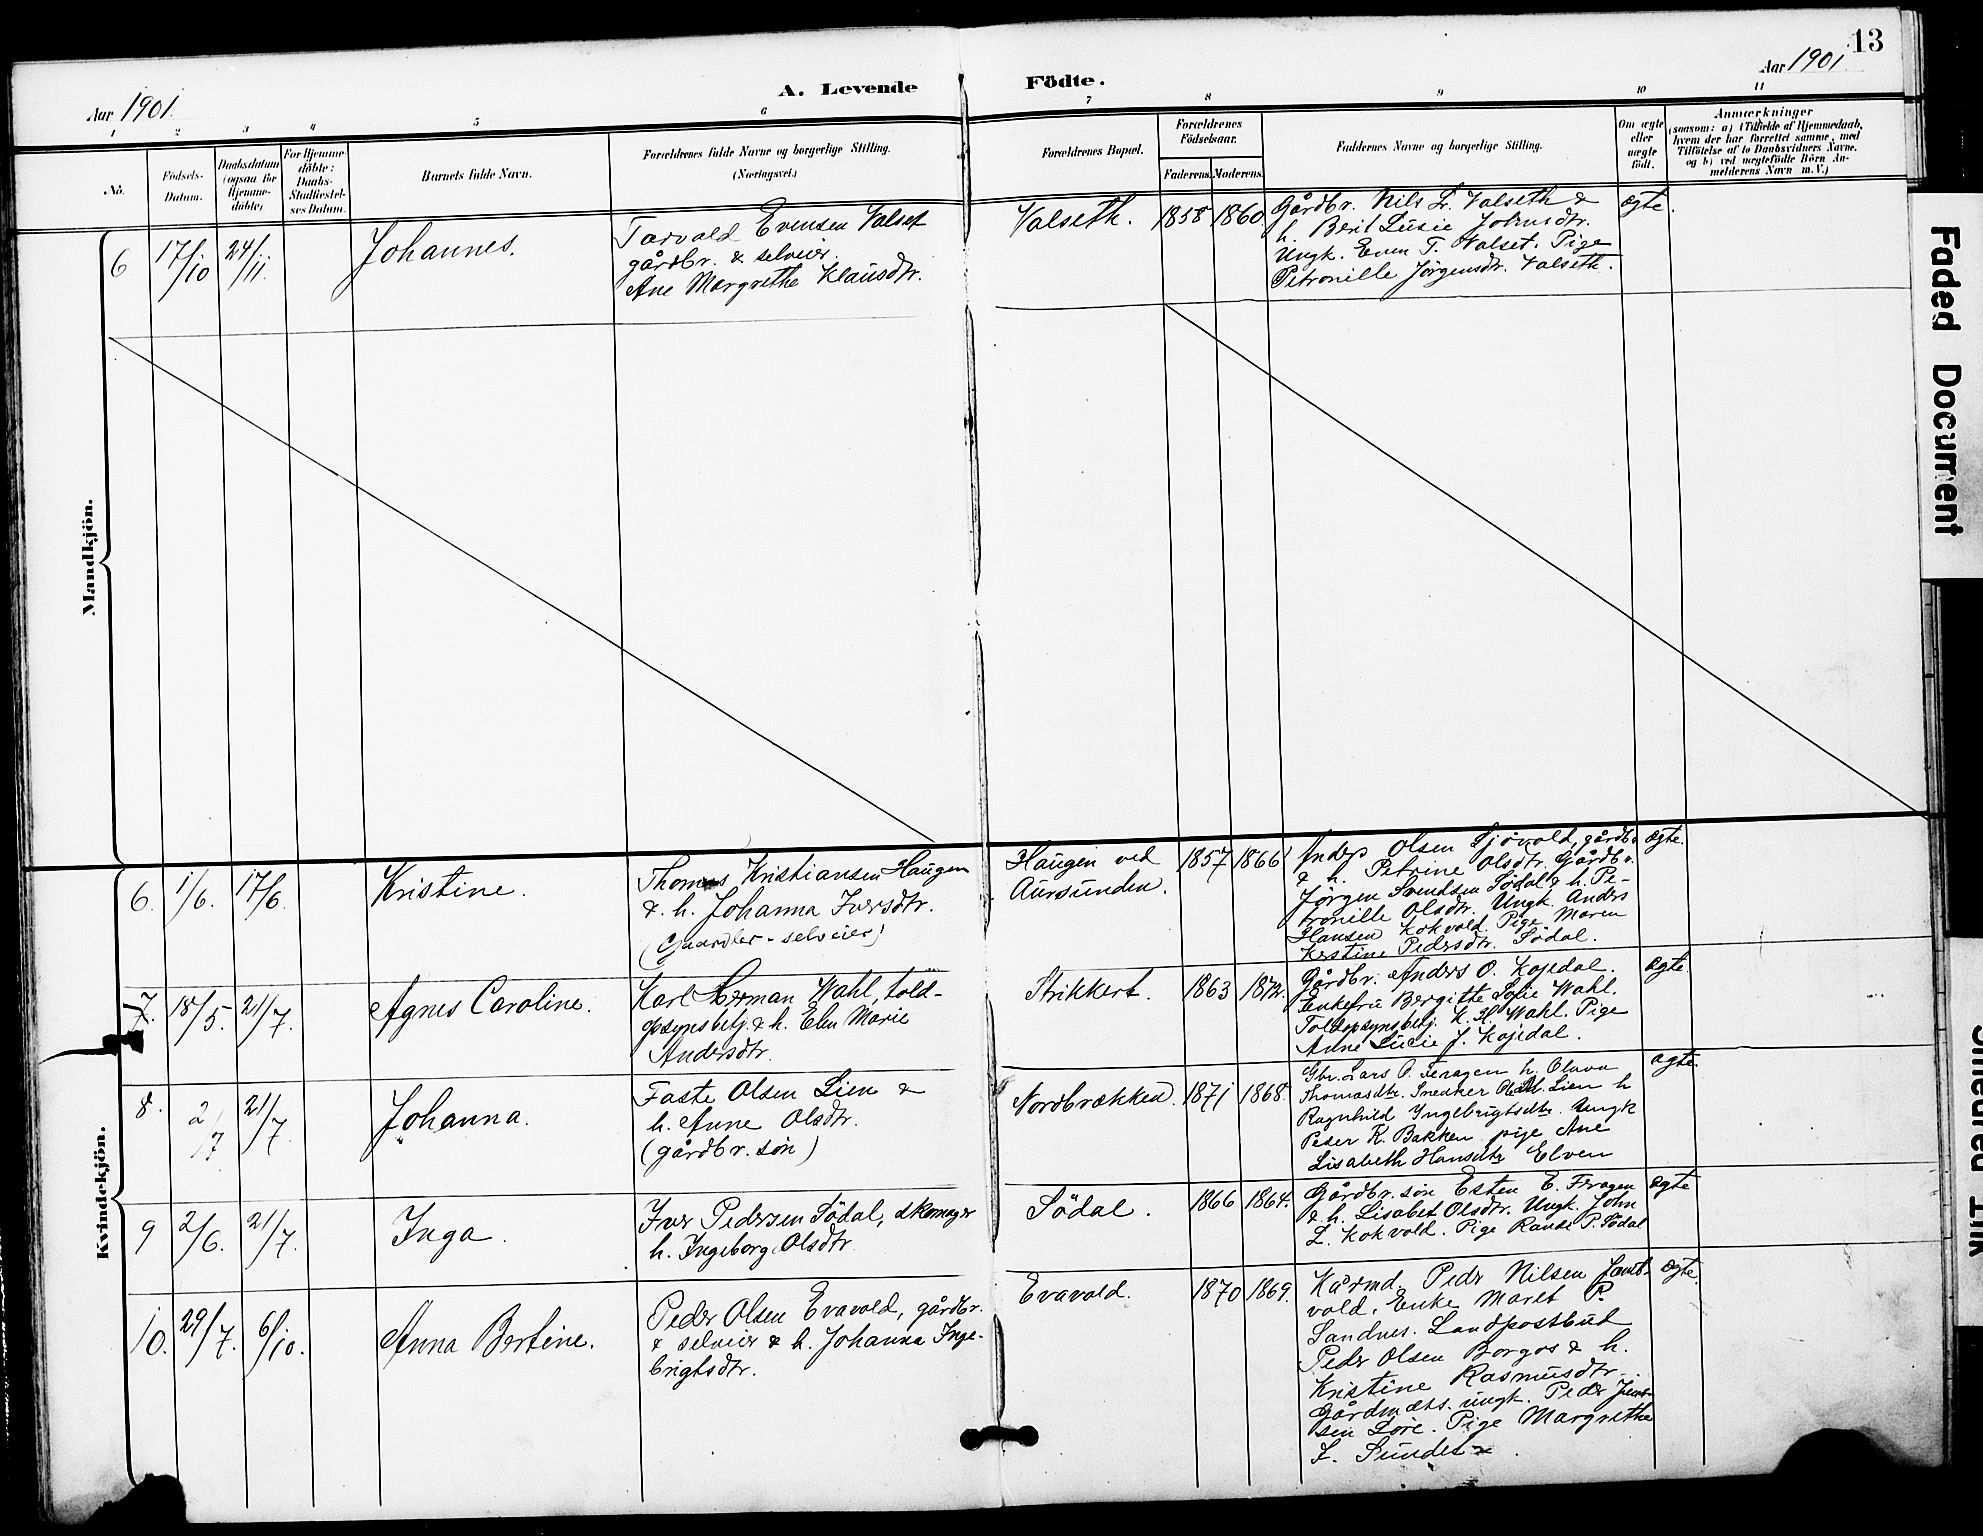 13
Aar 1901.
A. Levende Födte.
Aar 1901
1 2 3 4 5 6 7 8 9 10 11
No.
Födsels-Datum.
Daabsdatum (ogsaa for Hjemme-döbte)
For Hjemme-döbte: Daabs-Stadfæstel-ses Datum.
Barnets fulde Navn.
Forældrenes fulde Navne og borgerlige Stilling.
(Næringsvei.)
Forældrenes Bopæl.
Forældrenes Födselsaar.
Faderens. Moderens.
Faddernes Navne og borgerlige Stilling.
Om ægte eller uægte födt.
Anmærkninger
(saasom: a) i Tilfælde af Hjemmedaab,
hvem der har forrettet samme, med
Tilföielse af to Daabsvidners Navne.
og b) ved uægtefödte Börn An-
melderens Navn m. V.)
Mandkjön.
6 17/10 24/11. Johannes.
Torvald Evensen Valset
gårdbr. & selveier.
Ane Margrethe Klausdtr.
Valseth. 1858 1860
Gårdbr. Nils L. Valseth &
h. Berit Lusie Johnsdtr.
Ungk. Even T. Valset. Pige
Petronille Jørgensdtr. Valseth.
ægte.
Kvindekjön.
6. 1/6. 17/6. Kristine.
Thomas Kristiansen Haugen
& h. Johanna Iversdtr.
(Gaardbr - selveier)
Haugen ved
Aursunden.
1857 1866
Olsen Sjøvold, gårdbr.
& h. Petrine Olsdtr. Gårdbr.
Jørgen Svendsen Södal & h. Pe-
tronille Olsdtr. Ungk. Anders
Hansen Kokvold. Pige Maren
Kirstine Pedersdtr. Södal.
ægte.
7. 18/5. 21/7. Agnes Caroline.
Karl Herman Wahl, told-
opsynsbetj. & h. Elen Marie
Andersdtr.
Strikkert. 1863 1872.
Gårdbr. Anders O. Kojedal.
Enkefru Bergitte Sofie Wahl.
Toldopsynsbetj. K. H. Wahl. Pige
Anne Lucie J. Kojedal.
ægte
8. 2/7 21/7. Johanna.
Faste Olsen Lien &
h. Anne Olsdtr.
(gårdbr. søn)
Nordbrækken. 1871 1868.
Gbr. Lars O. Feragen h. Oluva
Thomasdtr. Snedker Lien h
Ragnhild Ingebrigtsdtr. Ungk
Peder R. Bakken pige Ane
Lisabeth Hansdtr Elven
ægte.
9 2/6. 21/7. Inga.
Iver Pedersen Södal, skomager
h. Ingeborg Olsdtr.
Södal. 1866 1864.
Gårdbr. søn Esten E. Feragen
& h. Lisabet Olsdtr. Ungk. John
L. Kokvold. Pige Randi P. Södal
ægte
10. 29/7. 6/10. Anna Bertine.
Peder Olsen Evavold, gårdbr.
& selveier & h. Johanna Inge-
brigtsdtr.
Evavold. 1870 1869.
Kårmd. Peder Nilsen
vold. Enke Maret P.
Sandnes. Landpostbud
Peder Olsen Borgos & h.
Kristine Rasmusdtr.
Gårdmds. ungk. Peder
sen Lore. Pige Margrethe
L. Sundet
ægte.
Faded Document